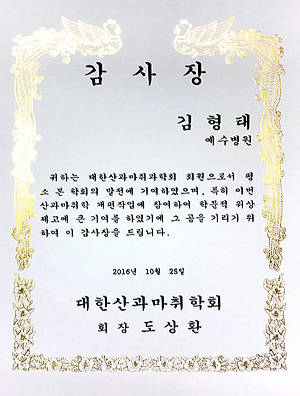 감 사 장
김 형 태
예수병원
귀하는 대한산과마취과학회 회원으로서 평
소 본 학회의 발전에 기여하였으며, 특히 이번
산과마취학 개편작업에 참여하여 학문적 위상
제고에 큰 기여를 하였기에 그 공을 기리기 위
하여 이 감사장을 드립니다.
2016년 10월 25일
대한산과마취학회
회 장 도 상 환